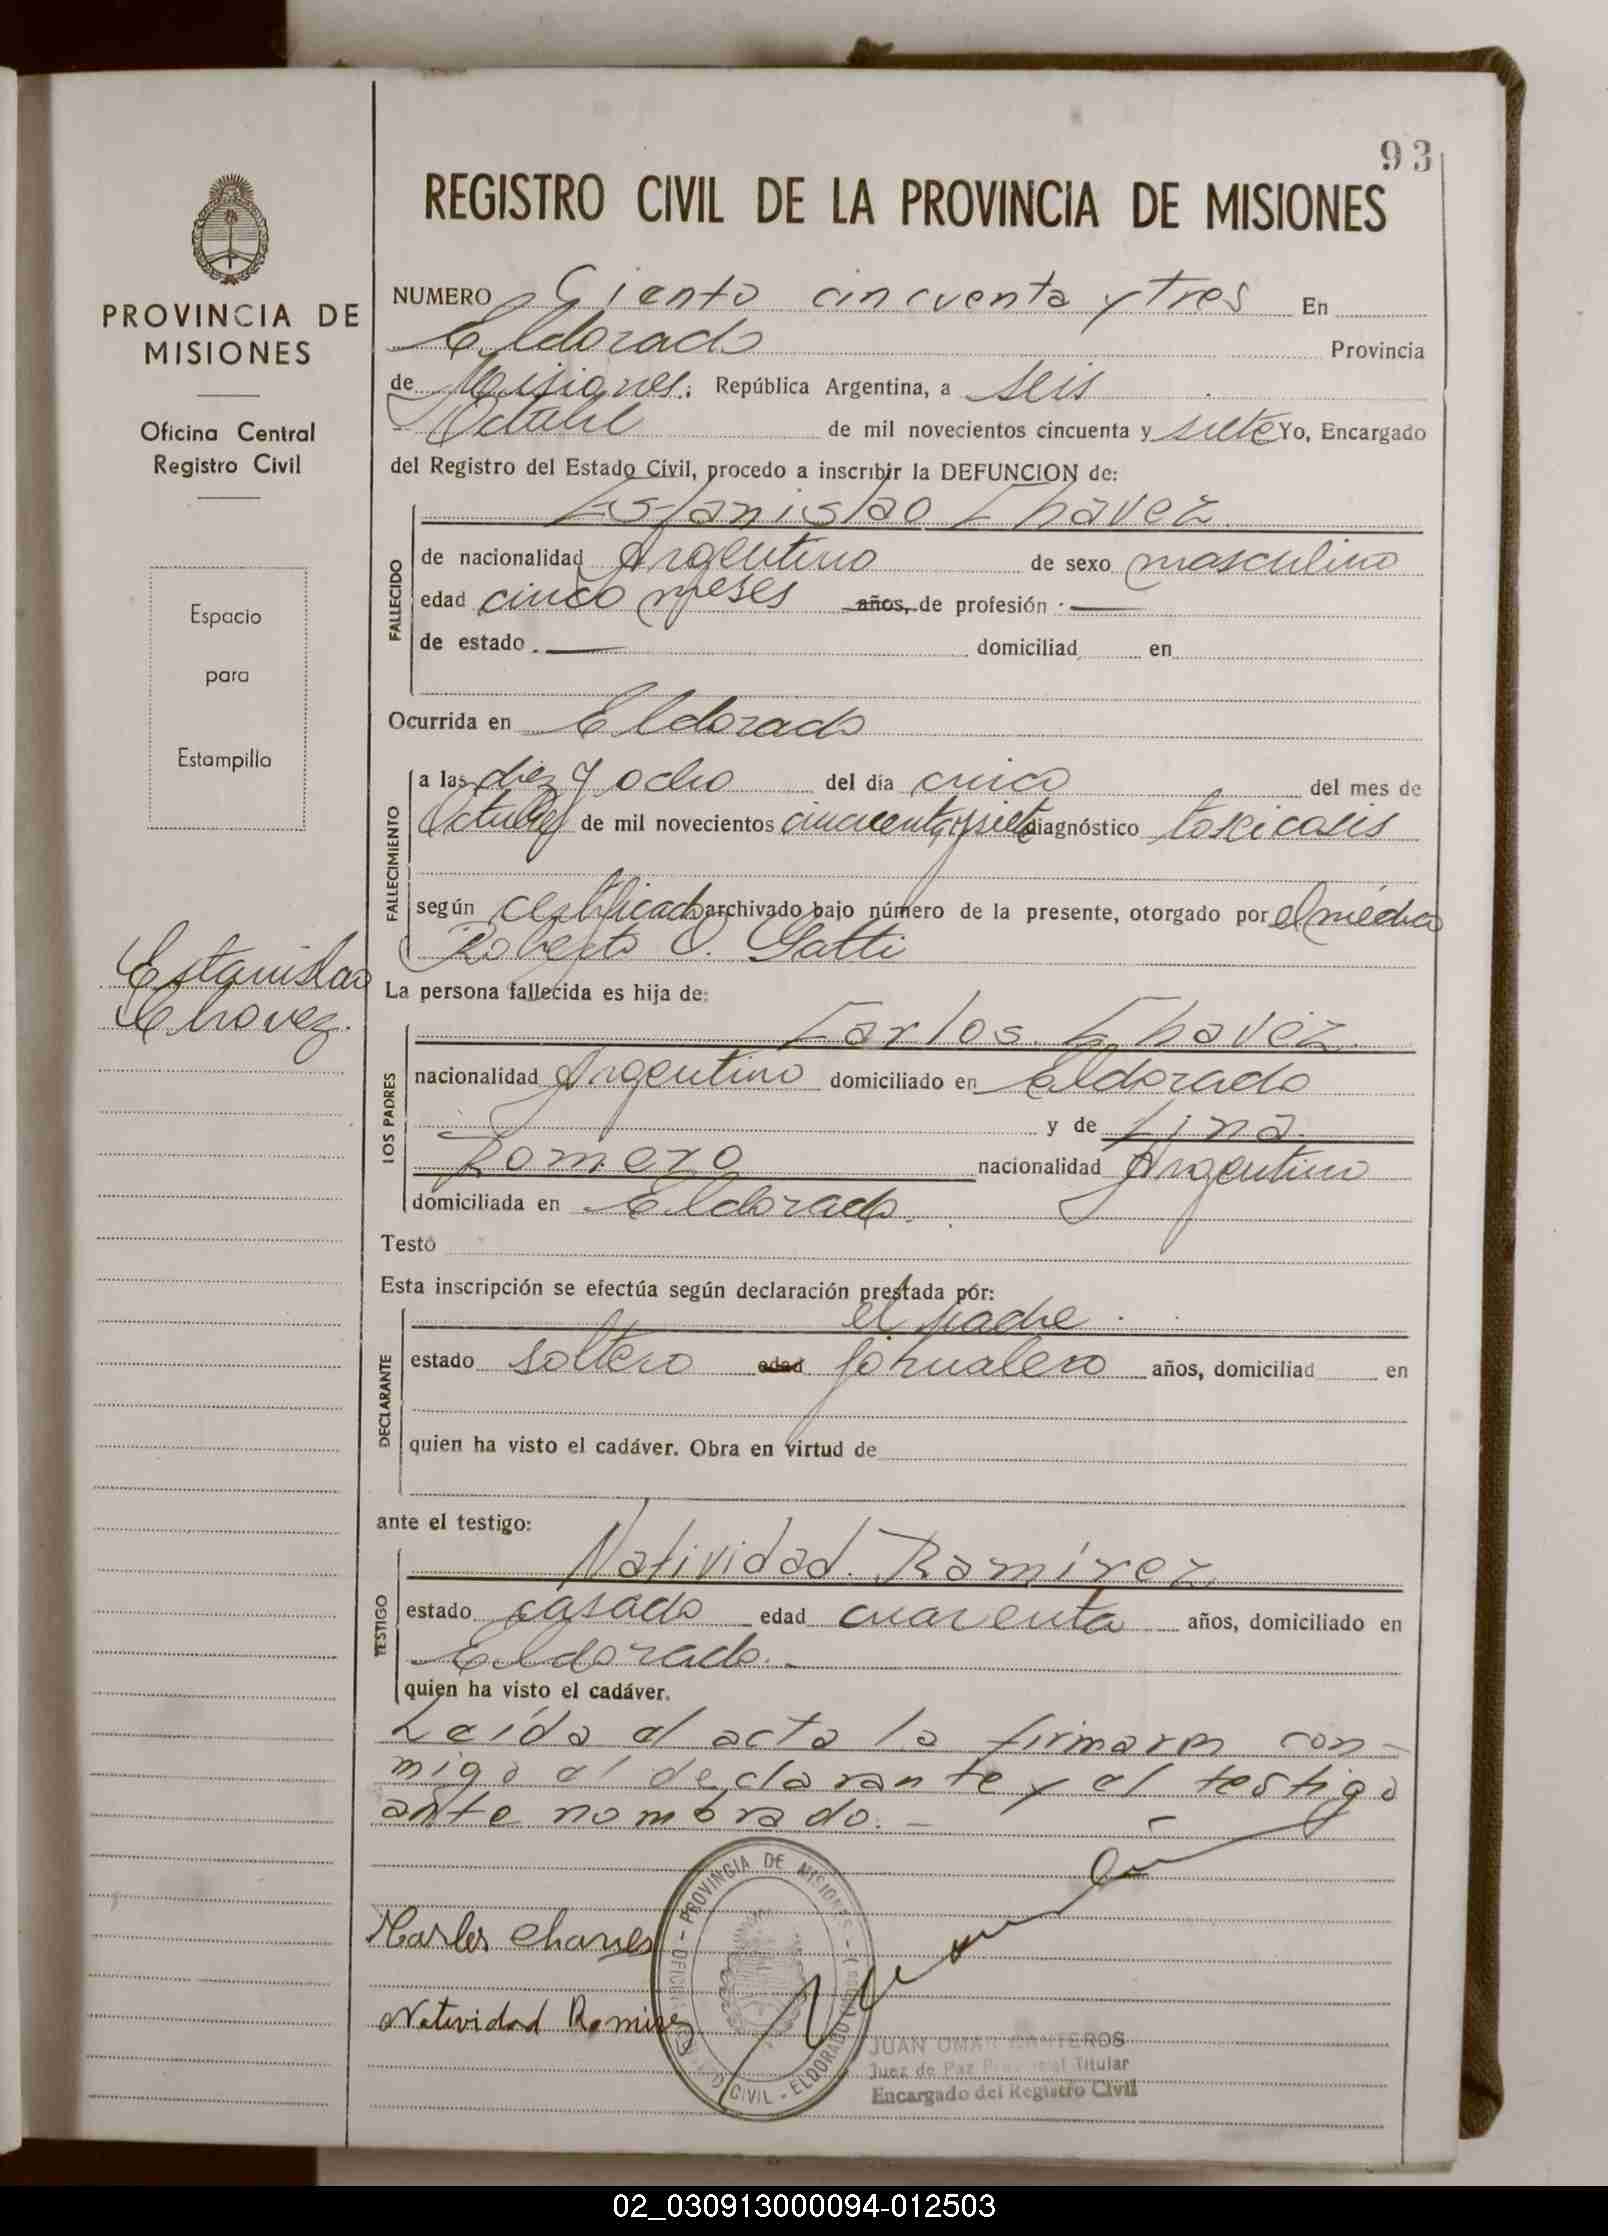 93
REGISTRO CIVIL DE LA PROVINCIA DE MISIONES
PROVINCIA DE
MISIONES
Oficina Central
Registro Civil
Espacio
para
Estampilla
Estanislao
Chavez.
NUMERO Ciento cincuenta y tres En
Eldorado Provincia
de Misiones; República Argentina, a seis
Octubre de mil novecientos cincuenta y siete Yo, Encargado
del Registro del Estado Civil, procedo a inscribir la DEFUNCION de:
Estanislao Chavez
FALLECIDO
de nacionalidad Argentino de sexo masculino
edad cinco meses años, de profesión —
de estado — domiciliad en
Ocurrida en Eldorado
FALLECIMIENTO
a las diez y ocho del día cinco del mes de
Octubre de mil novecientos cincuenta y siete diagnóstico toxicosis
según certificado archivado bajo número de la presente, otorgado por el médico
Roberto O. Gatti
La persona fallecida es hija de:
LOS PADRES
Carlos Chavez
nacionalidad Argentino domiciliado en Eldorado
y de Lina
Romero nacionalidad Argentina
domiciliada en Eldorado.
Testó
Esta inscripción se efectúa según declaración prestada por:
DECLARANTE
el padre
estado soltero edad jornalero años, domiciliad en
quien ha visto el cadáver. Obra en virtud de
ante el testigo:
TESTIGO
Natividad Ramírez
estado casado edad cuarenta años, domiciliado en
Eldorado.-
quien ha visto el cadáver.
Leída el acta la firmaron con-
migo el declarante y el testigo
ante nombrado.-
Karlos Chaves
Natividad Ramirez
PROVINCIA DE MISIONES - CIVIL - ELDORADO
JUAN OMAR
Juez de Paz Titular
Encargado del Registro Civil
02_030913000094-012503